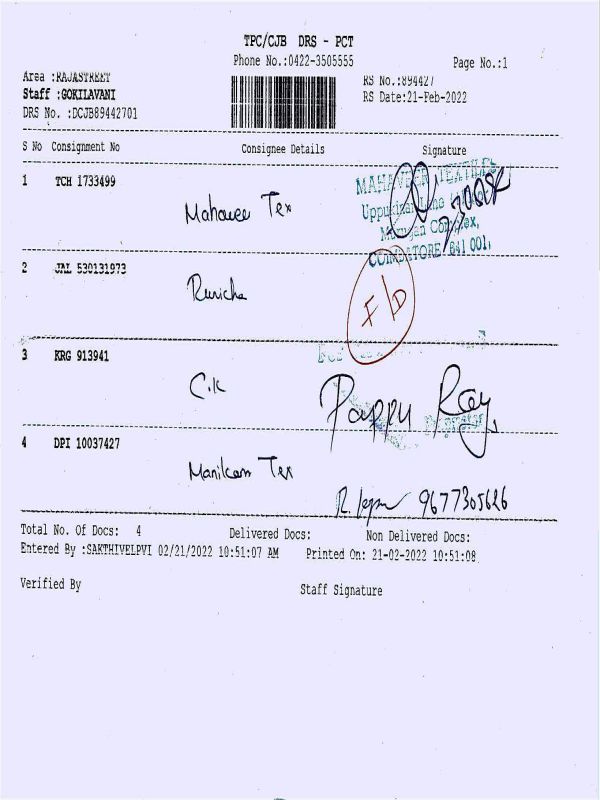 TPC/CJB DRS - PCT
Phone No.:0422-3505555
Page No.:1
Area :RAJASTREET
RS No.:894427
Staff :GOKILAVANI
RS Date:21-Feb-2022
DRS No. :DCJB89442701
S No Consignment No Consignee Details Signature
1 TCH 1733499
MAHAVEER TEXTILES
Mahavee Tex
Complex,
COIMBATORE 641 001.
2 JAL 530131973
Ruricha
F/D
3 KRG 913941
C.K
Pappu Ray
4 DPI 10037427
Manikam Tex
9677305626
Total No. Of Docs: 4 Delivered Docs: Non Delivered Docs:
Entered By :SAKTHIVELPVI 02/21/2022 10:51:07 AM Printed On: 21-02-2022 10:51:08
Verified By Staff Signature